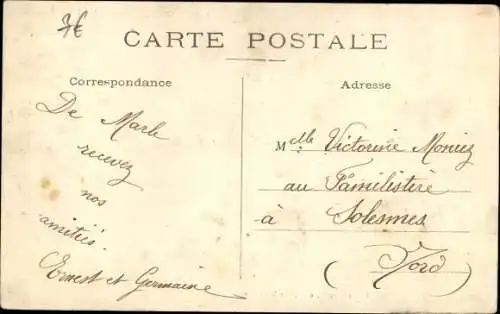 7€
CARTE POSTALE
Correspondance
Adresse
De Marle
recevez
nos
amitiés.
Ernest et Germaine
Mlle Victorine Moniez
au Familistère
à Solesmes
(Nord)